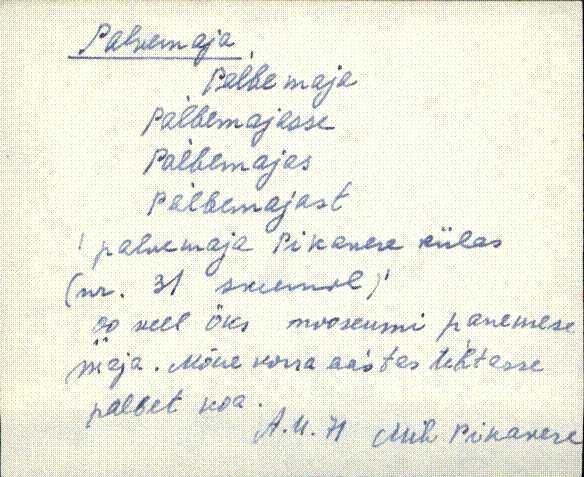 Palvemaja
Pal'be maja
Pal'bemajasse
Pal'bemajas
Pal'bemajast
' palvemaja Pikavere külas
(nr. 31 skeemil)'
oo veel üks mooseumi panemese
maja. Mõne korra aas'tas tehtasse
palbet koa.
A.U. 71 Mih Pikavere